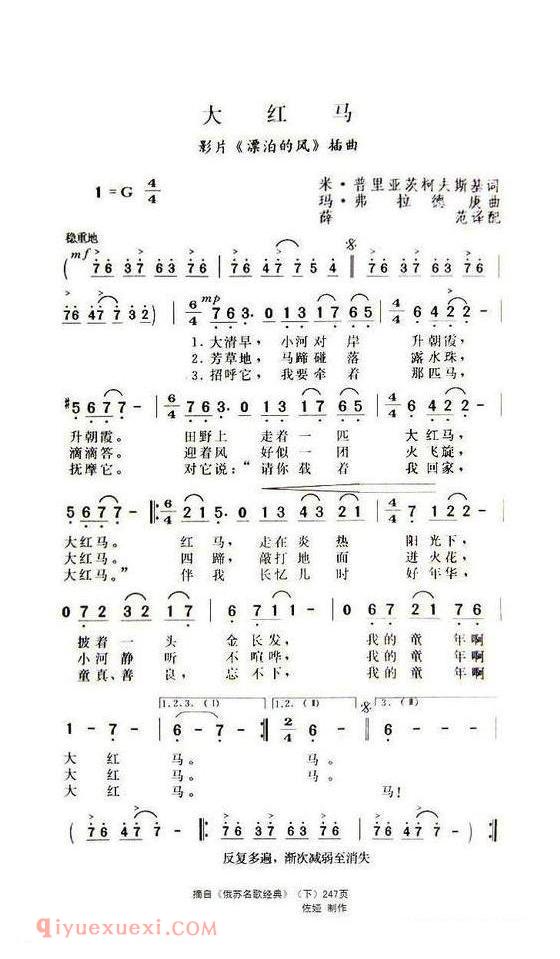 大 红 马
影片《漂泊的风》插曲
1 = G 4/4
米·普里亚茨柯夫斯基词
玛·弗拉德庚曲
薛 范译配
稳重地
mf
( 76 37 63 73 | 76 47 75 4 ‖ 76 37 63 73 |
76 47 77 - ) | 6/4 mp 763· 0 13 1765 | 4/4 6 422 - |
1. 大清早， 小河对岸 升朝霞，
2. 芳草地， 马蹄碰落 露水珠，
3. 招呼它， 我要牵着 那匹马，
#5677 - | 6/4 763· 0 13 1765 | 4/4 6422 - |
升朝霞。 田野上 走着一匹 大红马，
滴滴答。 迎着风 好似一团 火飞旋，
抚摩它。 对它说：“请你载着 我回家，
5677 - ‖: 6/4 215· 0 13 4321 | 4/4 0 422 - |
大红马。 红马， 走在炎热 阳光下，
大红马。 四蹄， 敲打地面 迸火花，
大红马。” 伴我 长忆儿时 好年华，
0 72 32 17 | 6 71 - | 0 67 21 76 |
披着一头 金长发， 我的童年啊
小河静听 不喧哗， 我的童年啊
童真、善良， 忘不下， 我的童年啊
1.2.3.（Ⅰ） 1.2.（Ⅱ） 3.（Ⅱ）
1 - 7 - | 6 - 7 - :‖ 2/4 6 - :‖ 4/4 6 - - - |
大 红 马。 马。
大 红 马。 马。
大 红 马。 马！
( 76 47 7 - ‖: 76 37 63 73 | 76 47 7 - ) :‖
反复多遍，渐次减弱至消失
摘自《俄苏名歌经典》（下）247页
佐娅 制作
qiyuexuexi.com